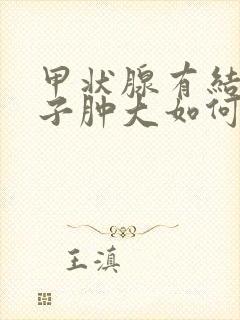 甲状腺有結
子肿大如何
王滇